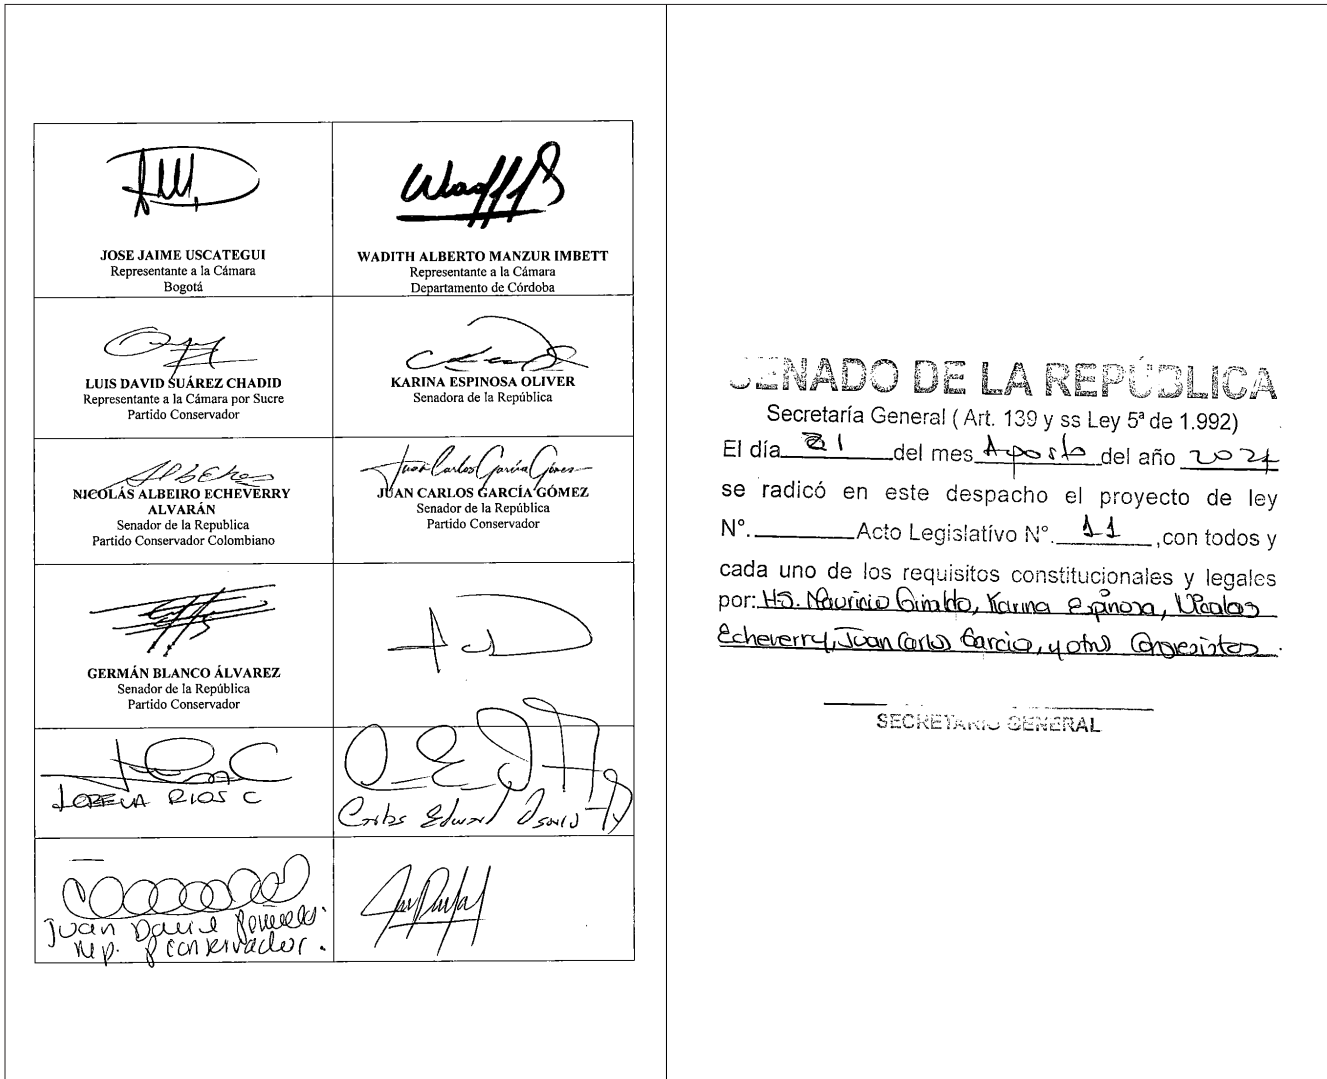 JOSE JAIME USCATEGUI
Representante a la Cámara
Bogotá
WADITH ALBERTO MANZUR IMBETT
Representante a la Cámara
Departamento de Córdoba
LUIS DAVID SUÁREZ CHADID
Representante a la Cámara por Sucre
Partido Conservador
KARINA ESPINOSA OLIVER
Senadora de la República
NICOLÁS ALBEIRO ECHEVERRY
ALVARÁN
Senador de la Republica
Partido Conservador Colombiano
Juan Carlos García Gómez
JUAN CARLOS GARCÍA GÓMEZ
Senador de la República
Partido Conservador
GERMÁN BLANCO ÁLVAREZ
Senador de la República
Partido Conservador
LORENA RIOS C
Carlos Edward Osorio
Juan Daniel
rep. P conservador.
SENADO DE LA REPÚBLICA
Secretaría General ( Art. 139 y ss Ley 5ª de 1.992)
El día 21 del mes Agosto del año 2024
se radicó en este despacho el proyecto de ley
N°. Acto Legislativo N°. 11 ,con todos y
cada uno de los requisitos constitucionales y legales
por: H.S. Mauricio Giraldo, Karina Espinosa, Nicolas
Echeverry, Juan Carlos Garcia, y otros Congresistas.
SECRETARIO GENERAL